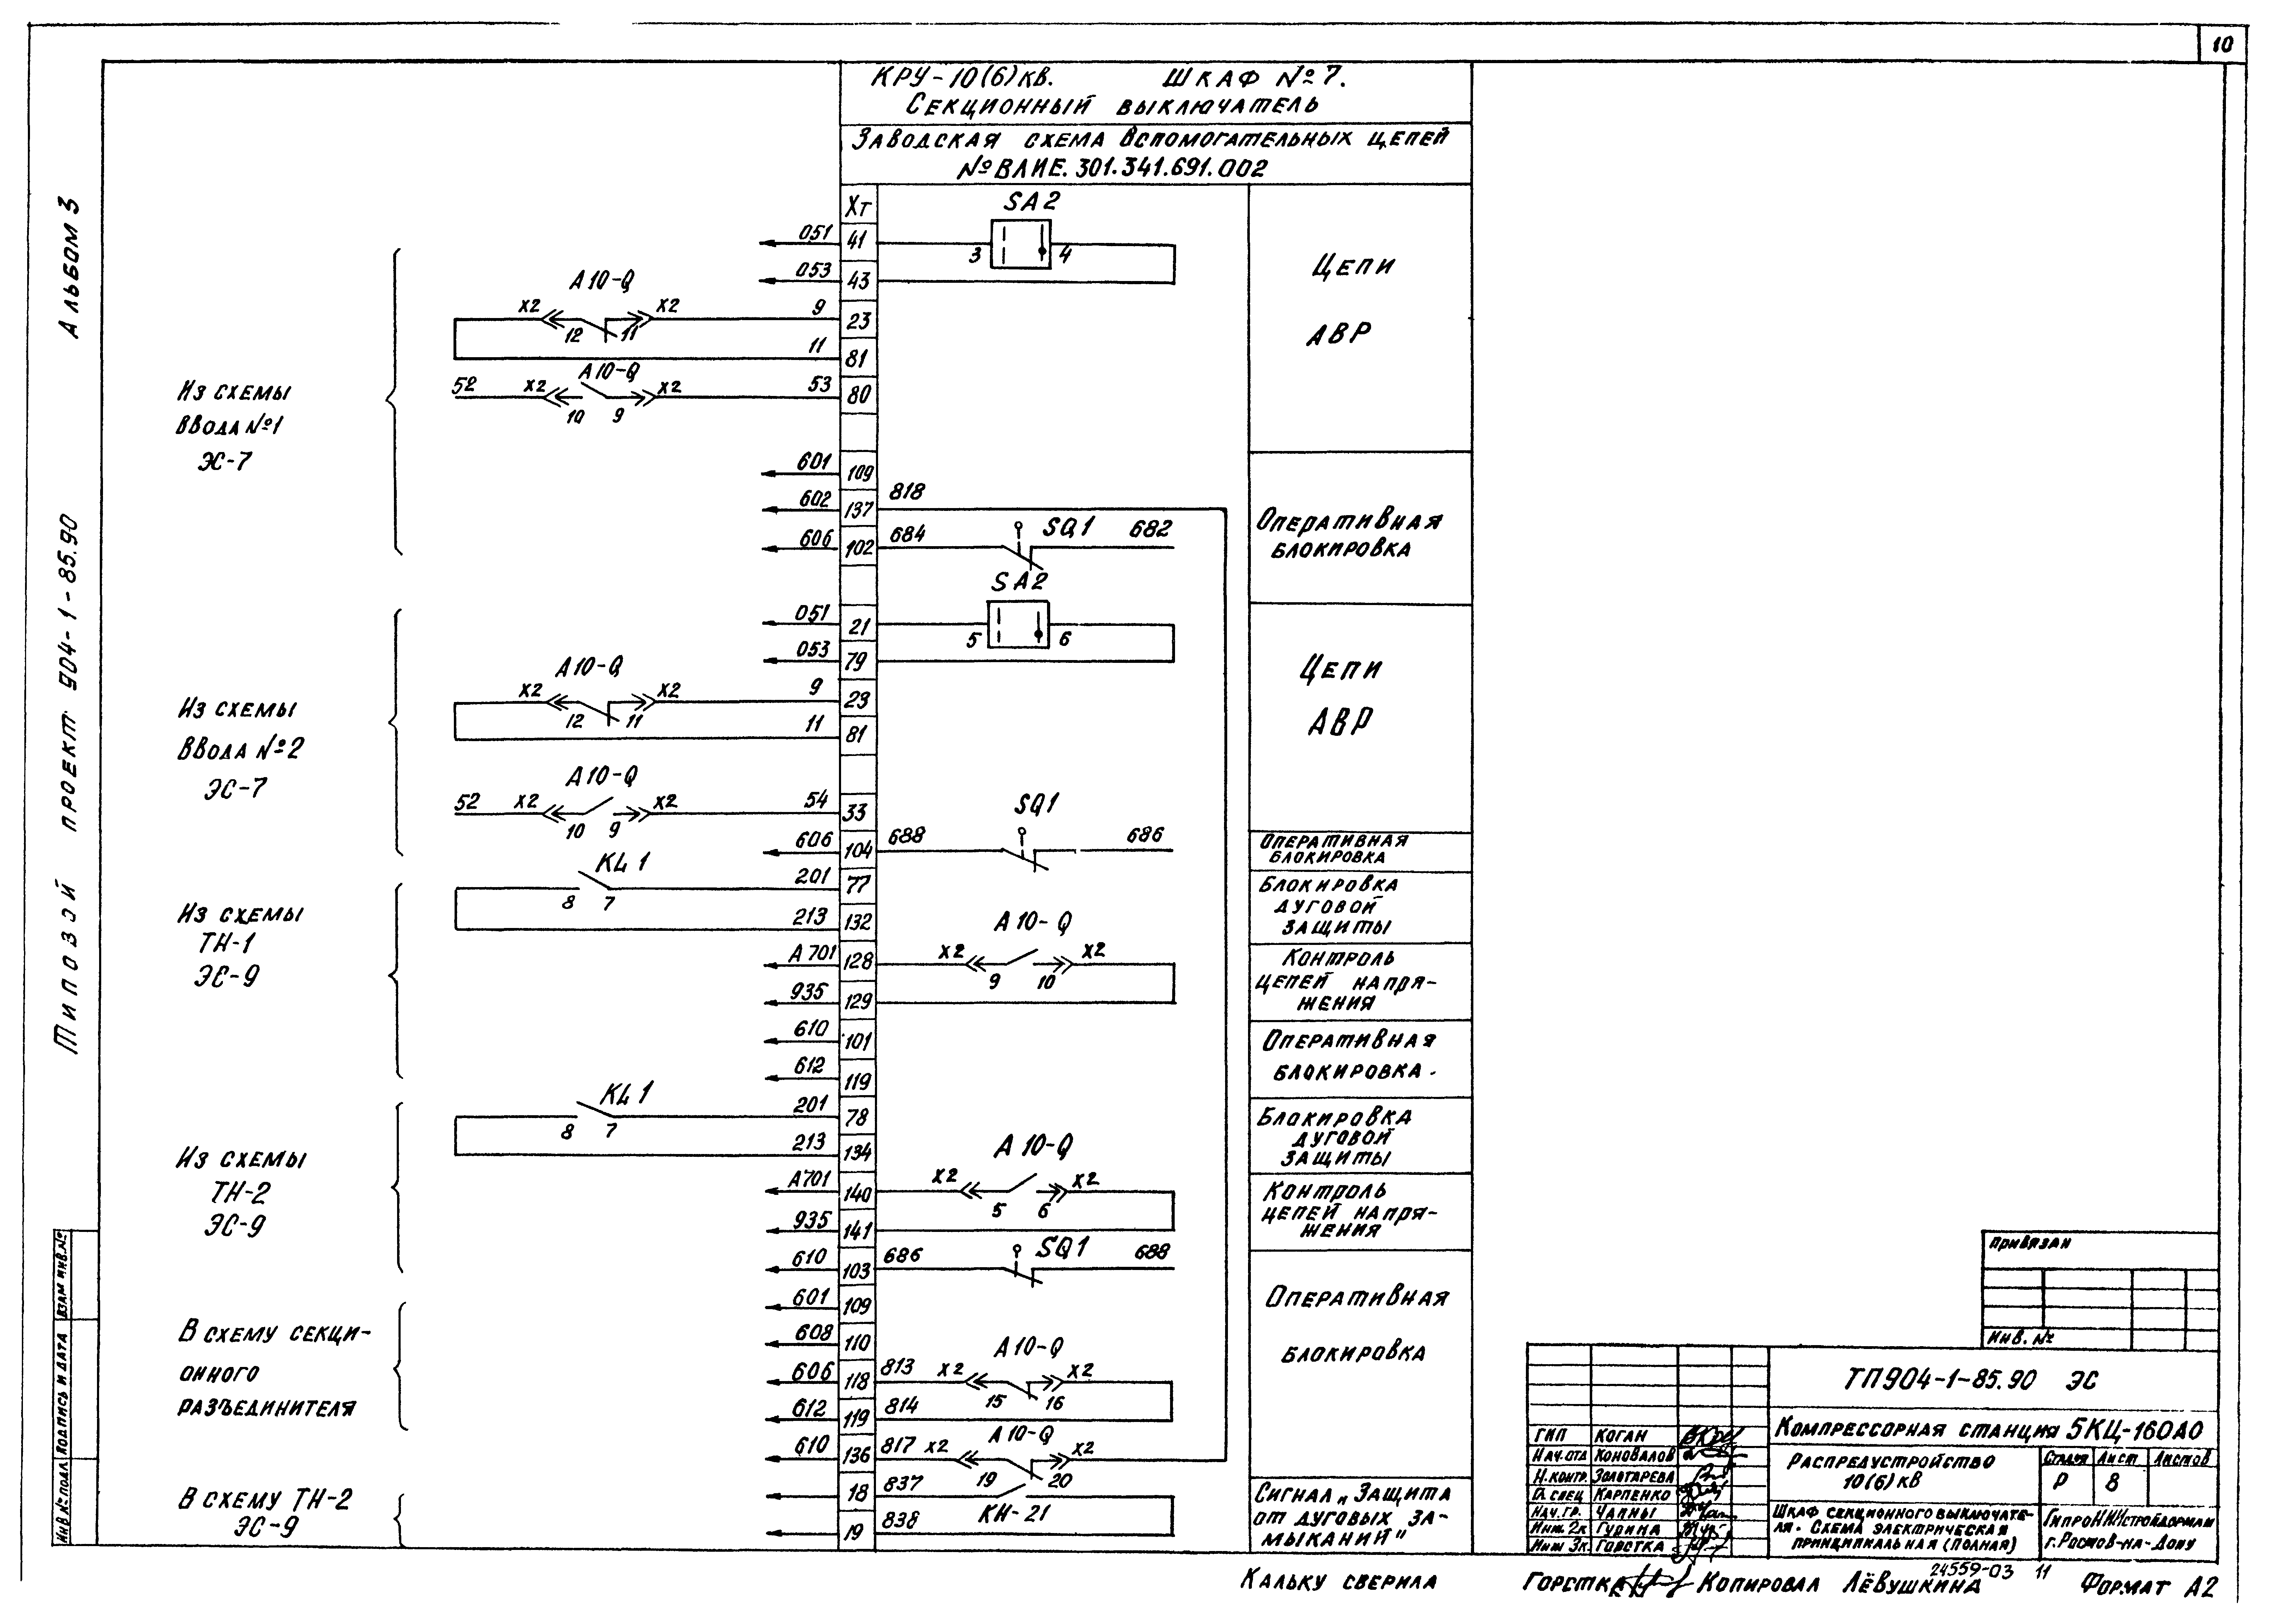 10
КРУ-10(6)кв. Шкаф №7.
Секционный выключатель
Заводская схема вспомогательных цепей
№ВЛИЕ.301.341.691.002
Альбом 3
Типовой проект 904-1-85.90
Хт
SA2
051 41 3 4
053 43
Цепи
АВР
А10-Q
X2 12 11 X2 9 23
11 81
А10-Q
52 X2 10 9 X2 53 80
Из схемы
ввода №1
ЭС-7
601 109
602 137 818
606 102 684 SQ1 682
Оперативная
блокировка
SA2
051 21 5 6
053 79
Цепи
АВР
А10-Q
X2 12 11 X2 9 23
11 81
Из схемы
ввода №2
ЭС-7
А10-Q
52 X2 10 9 X2 54 33
SQ1
606 104 688 686
Оперативная
блокировка
KL1
8 7 201 77
213 132
Блокировка
дуговой
защиты
Из схемы
ТН-1
ЭС-9
А10-Q
А701 128 X2 9 10 X2
935 129
Контроль
цепей напря-
жения
610 101
612 119
Оперативная
блокировка.
KL1
8 7 201 78
213 134
Блокировка
дуговой
защиты
Из схемы
ТН-2
ЭС-9
А10-Q
А701 140 X2 5 6 X2
935 141
Контроль
цепей напря-
жения
610 103 686 SQ1 688
601 109
608 110
Оперативная
блокировка
В схему секци-
онного
разъединителя
А10-Q
606 118 813 X2 15 16 X2
612 119 814
А10-Q
610 136 817 X2 19 20 X2
18 837
КН-21
19 838
В схему ТН-2
ЭС-9
Сигнал "Защита
от дуговых за-
мыканий"
Привязан
Инв. №
ТП904-1-85.90 ЭС
Компрессорная станция 5КЦ-160А0
Распредустройство
10(6)кВ
Стадия Лист Листов
Р 8
Шкаф секционного выключате-
ля. Схема электрическая
принципиальная (полная)
ГипроНИИстройдормаш
г. Ростов-на-Дону
ГИП Коган
Нач.отд Коновалов
Н.контр. Золотарева
Гл.спец Карпенко
Нач.гр. Чапны
Инж.2к Гурина
Инж 3к. Горстка
Инв.№ подл. Подпись и дата Взам инв.№
Кальку сверила Горстка Копировал Лёвушкина
24559-03 11
Формат А2